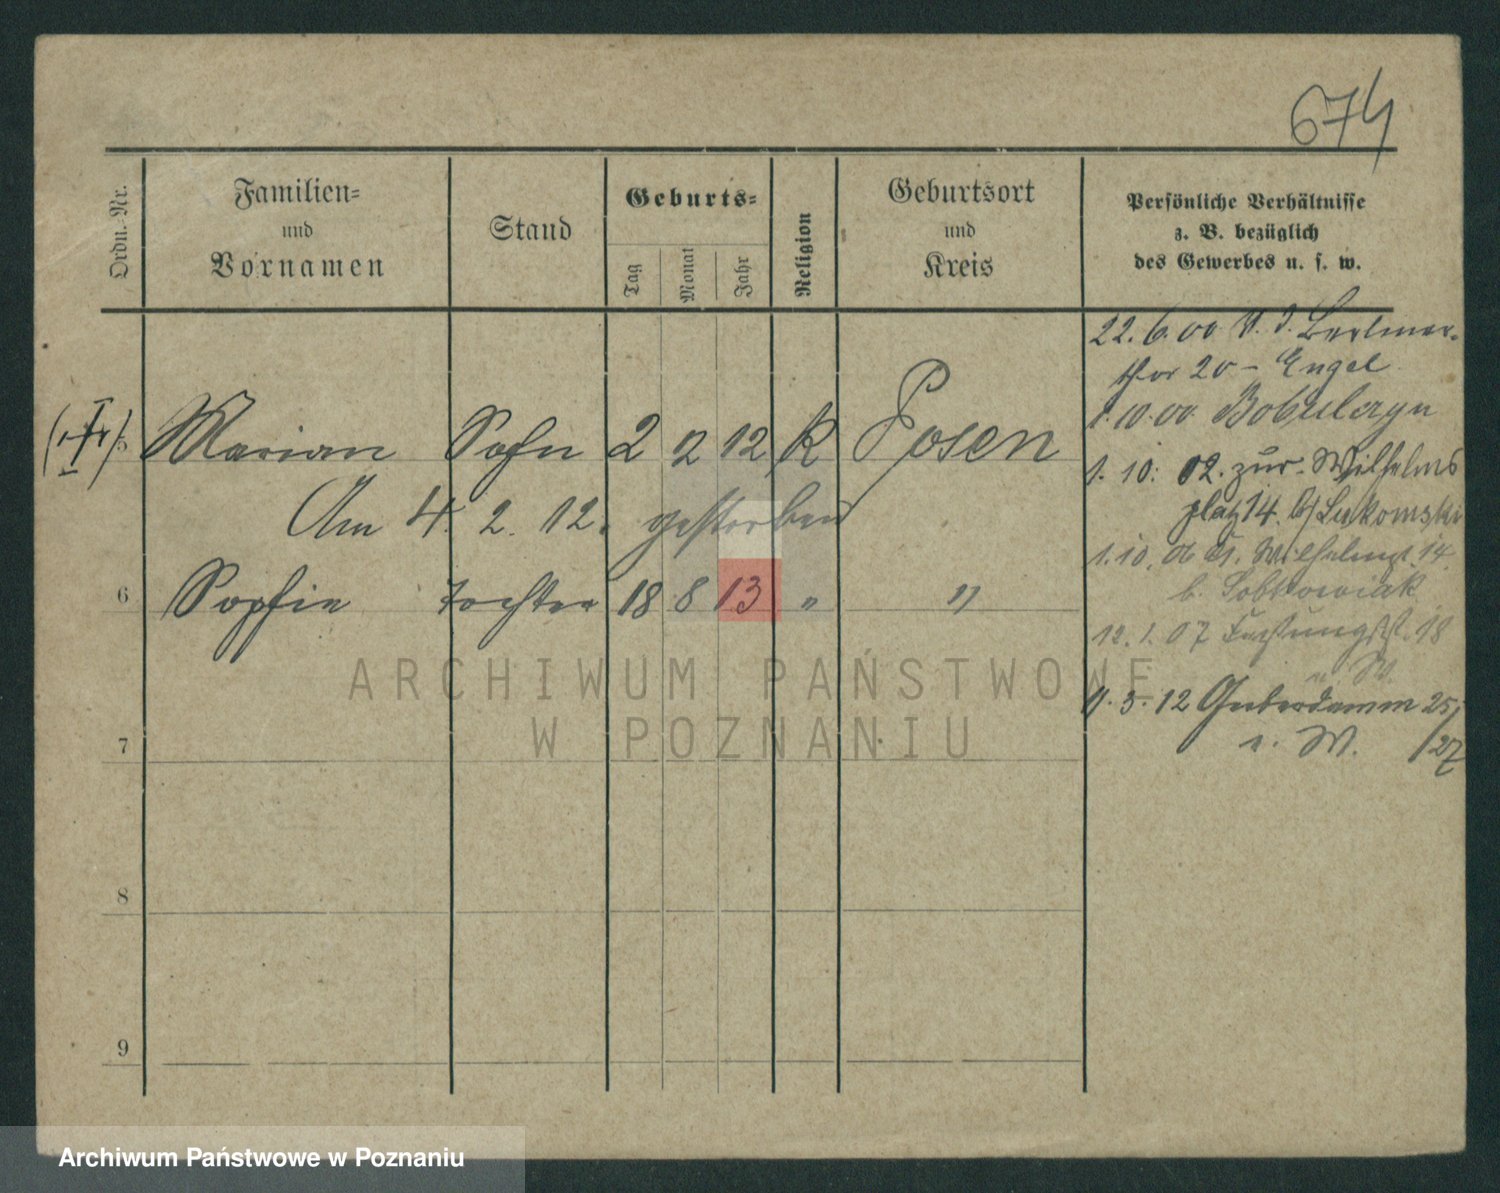 674
Ordn.-Nr.
Familien-
und
Vornamen
Stand
Geburts-
Tag
Monat
Jahr
Religion
Geburtsort
und
Kreis
Persönliche Verhältnisse
z. B. bezüglich
des Gewerbes u. s. w.
22. 6. 00 Berliner-
thor 20 - Engel
1. 10. 00
1. 10. 02. zur. Wilhelms
platz 14. b/ Lukomski
1. 10. 06 Wilhelmpl. 14.
b. Sobkowiak
12. 1. 07 18
u. W.
3. 12 Gerberdamm 25/
u. W. /27
5 Marian Sohn 2 2 12 K Posen
Am 4. 2. 12. gestorben
6 Sophie Tochter 18 8 13 " "
7
8
9
ARCHIWUM PAŃSTWOWE
W POZNANIU
Archiwum Państwowe w Poznaniu